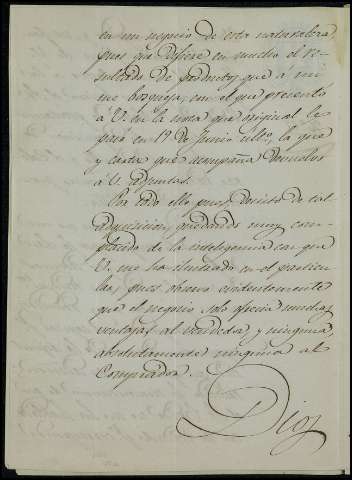 en un negocio de esta naturaleza
pues que difiere en mucho el re-
sultado de productos que á mi
me bosqueja, con el que presento
á V. en la nota que original le
pasé en 19 de Junio ulto, la que
y carta que acompaña devuelvo
á V. adjuntas.
Por todo ello pues, desisto de tal
adquisicion, quedando muy com-
placido de la inteligencia con que
V. me ha ilustrado en el particu-
lar, pues observo evidentemente
que el negocio solo ofrecia muchas
ventajas al vendedor, y ninguna,
absolutamente ninguna al
Comprador.
Dios